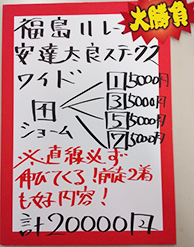 大勝負
福島11レース
安達太良ステークス
ワイド
田
ショーム
1 5000円
3 5000円
5 5000円
7 5000円
※直線必ず
伸びてくる!前走2着
も好内容!
計20000円